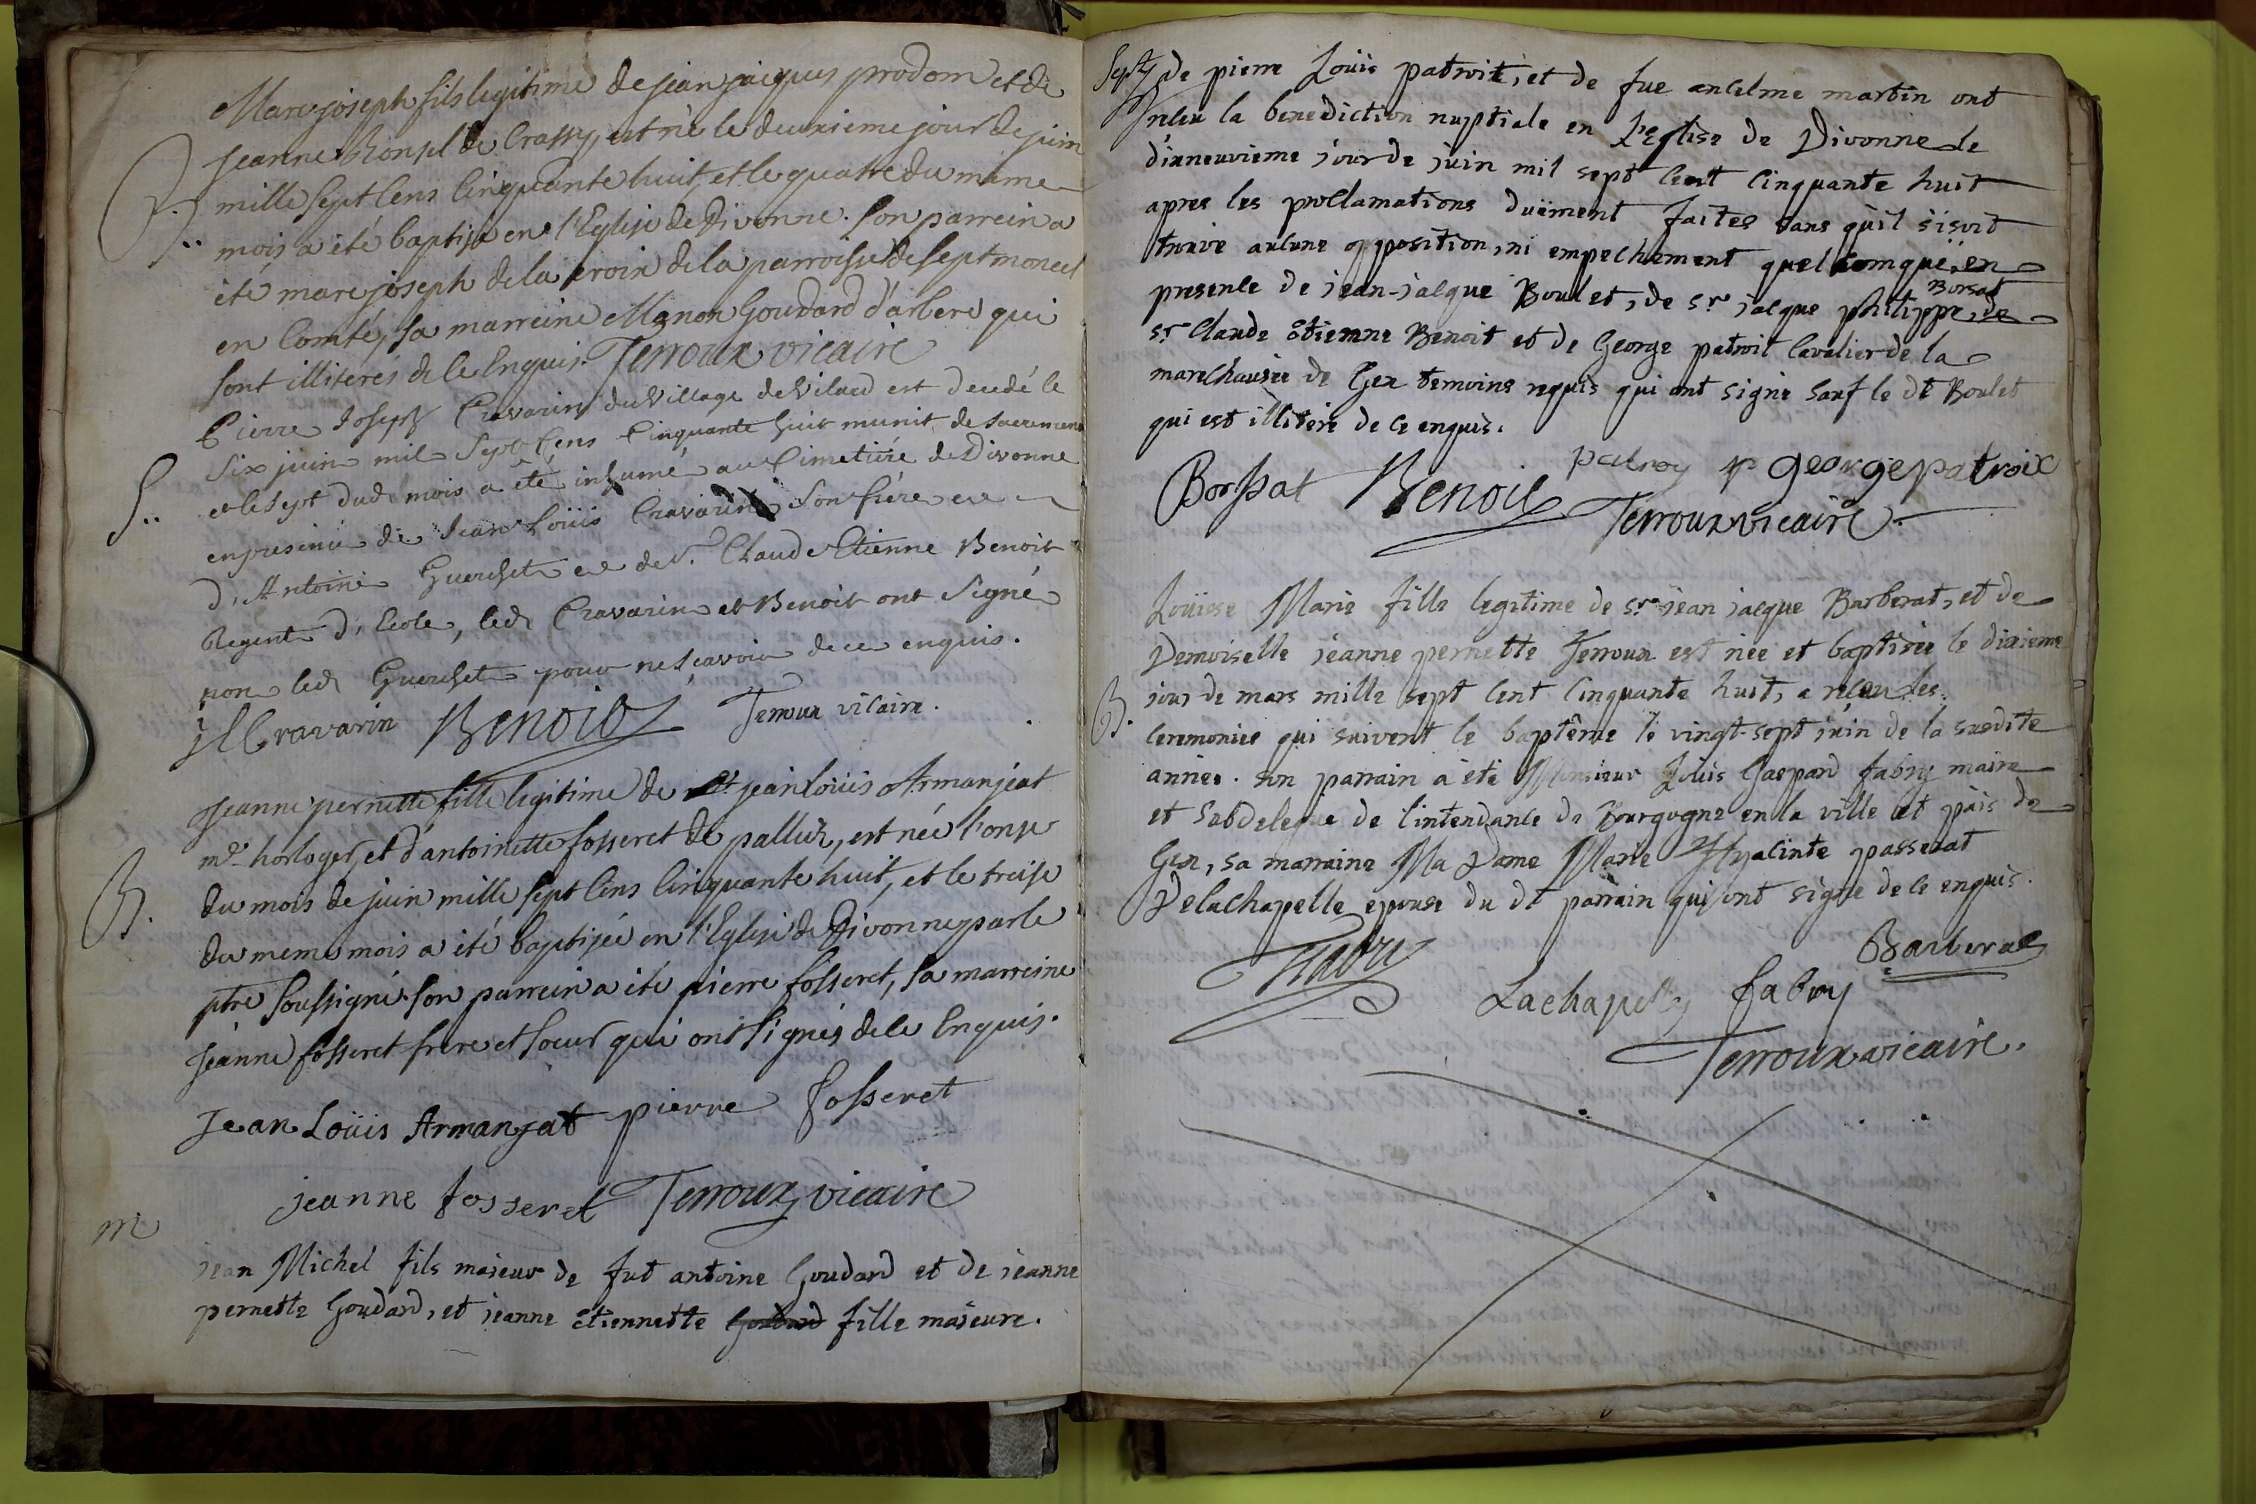 Marc joseph fils legitime de jean jacques prodom et de
B. Jeanne de Crassy, est né le deuxieme jour de juin
mille sept cens cinquante huit, et le quatre du meme
mois a été baptisé en l'Eglise de Divonne. son parrein a
été marc joseph de la croix de la parroisse de septmoncel
en Comté, sa marreine Manon Goudard d'arbere qui
sont illiterés de ce Enquis. Terroux vicaire
Pierre Joseph Cravarin du Village de Vilard est decedé le
S.. Six juin mil Sept Cens Cinquante huit munit de sacremens
et le sept dud. mois a été inhumé au Cimetiére de Divonne
en presence de Jean Loüis Cravarin son frére et
d'Antoine Guerchet et de S.r Claude Etienne Benoit
Regent d'Ecole, led. Cravarin et Benoit ont Signé
non led. Guerchet pour ne Sçavoir de ce enquis.
jl Cravarin Benoit Terroux vicaire.
Jeanne pernette fille legitime de jean loüis Armanjeat
B. m.e horloger, et d'antoinette fosseret de , est née l'onze
du mois de juin mille sept cens cinquante huit, et le treise
du meme mois a été baptisée en l'Eglise de Divonne par le
ptre soussigné. son parrein a été pierre fosseret, sa marreine
jeanne fosseret frere et soeur qui ont signés de ce Enquis.
Jean Loüis Armanjat pierre fosseret
jeanne fosseret Terroux vicaire
M jean Michel fils majeur de fut antoine Goudard et de jeanne
pernette Goudard, et jeanne étiennette Goudard fille majeure.
de pierre Loüis patroit, et de fue ancelme martin ont
recu la benediction nuptiale en L'eglise de Divonne le
dixneuvieme jour de juin mil sept cent cinquante huit
apres les proclamations duëment faites sans qu'il s'isoit
trouvé aucune opposition, ni empechement quelcomque, en
presence de jean-jacque Boulet, de s.r jacque philippe Borsat, de
s.r Claude étienne Benoit et de George patroit cavalier de la
marechausée de Gex temoins requis qui ont signé sauf le dt Boulet
qui est illiteré de ce enquis.
Borssat Benoit patroy George patroix
Terroux vicaire.
Loüise Marie fille legitime de s.r jean jacque Barberat, et de
Demoiselle jeanne pernette Terroux est née et baptisée le dixieme
B. jour de mars mille sept cent cinquante huit, a reçeu les
ceremonies qui suivent le baptême le vingt-sept juin de la susdite
année. son parrain a été Monsieur Loüis Gaspard fabry maire
et Subdelegué de l'intendance de Bourgogne en la ville et païs de
Gex, sa marraine Ma Dame Marie Hyacinte passerat
Delachapelle epouse du dt parrain qui ont signé de ce enquis.
Fabry Barberat
Lachapelle fabry
Terroux vicaire.